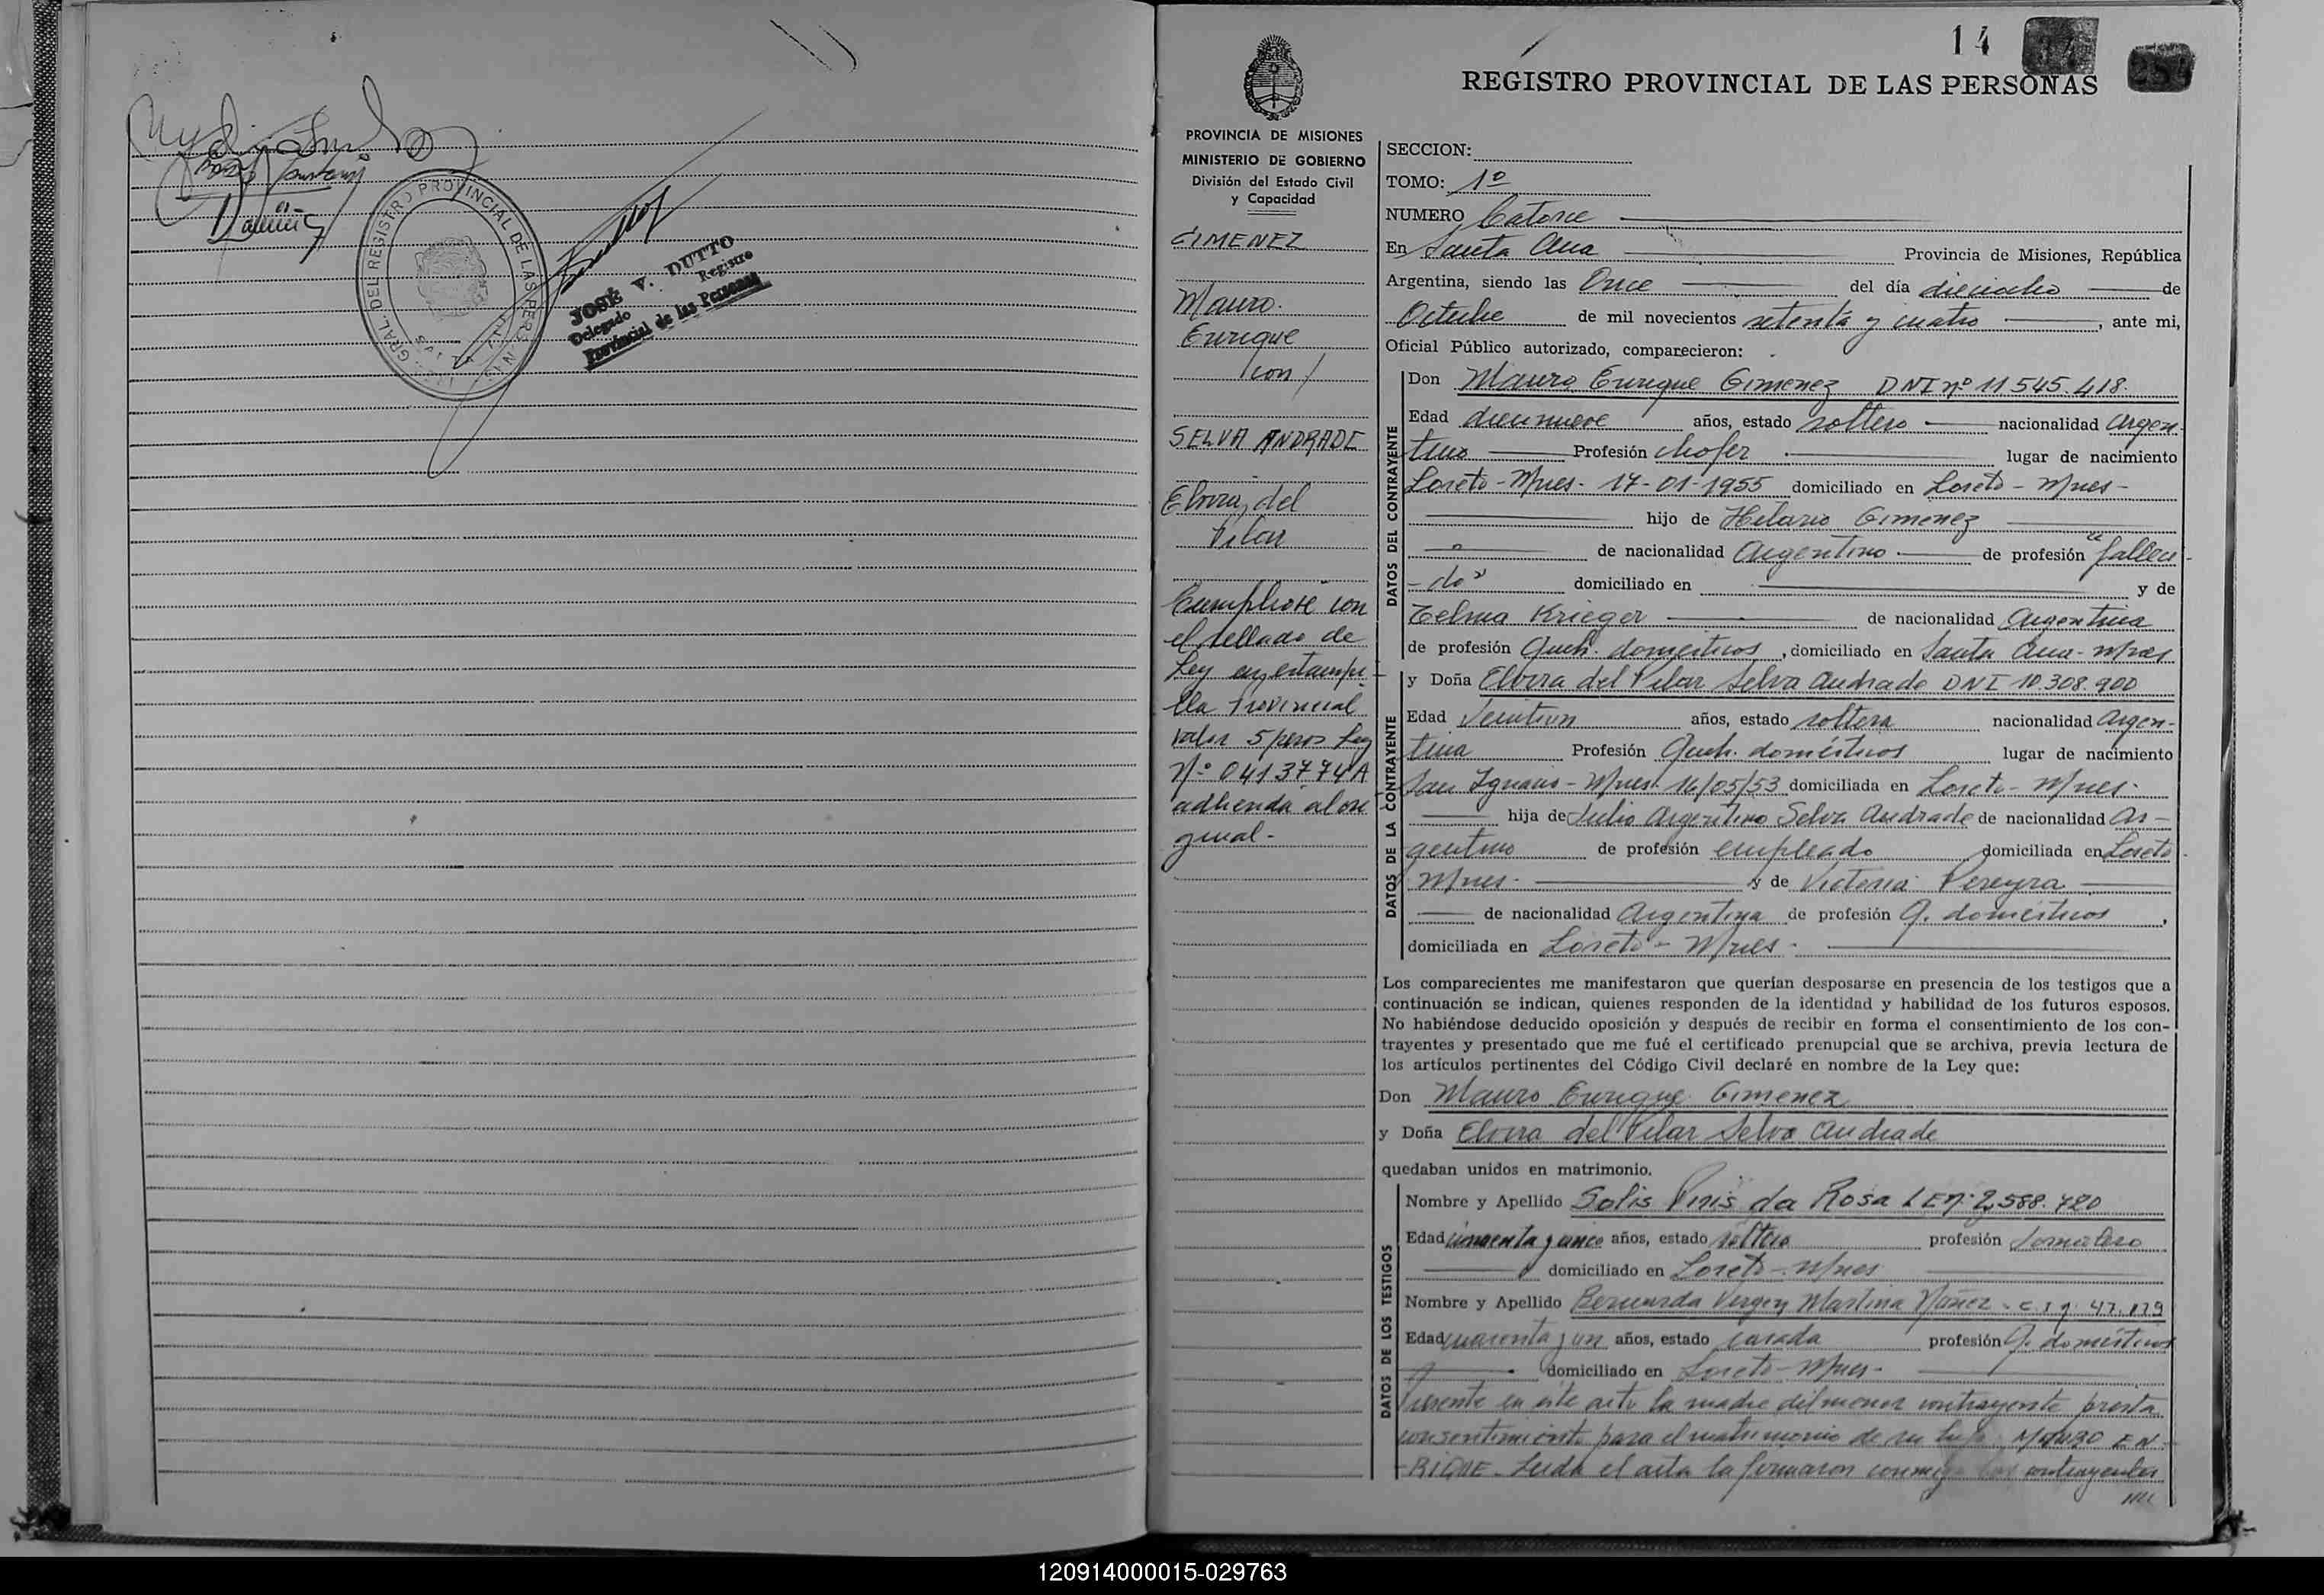 JOSÉ V. DUTTO
Delegado Registro
Provincial de las Personas
REGISTRO PROVINCIAL DE LAS PERSONAS
14
REGISTRO PROVINCIAL DE LAS PERSONAS
PROVINCIA DE MISIONES
MINISTERIO DE GOBIERNO
División del Estado Civil
y Capacidad
GIMENEZ
Mauro
Enrique
con
SELVA ANDRADE
Elvira del
Pilar
Cumpliose con
el sellado de
Ley en estampi-
lla Provincial
valor 5 pesos Ley
Nº 0413774 A
adherida al ori
ginal-
SECCION:
TOMO: 1º
NUMERO Catorce
En Santa Ana Provincia de Misiones, República
Argentina, siendo las Once del día dieciocho de
Octubre de mil novecientos setenta y cuatro, ante mi,
Oficial Público autorizado, comparecieron:
DATOS DEL CONTRAYENTE
Don Mauro Enrique Gimenez DNI nº 11.545.418.
Edad diecinueve años, estado soltero nacionalidad Argen-
tino Profesión chofer lugar de nacimiento
Loreto - Mnes - 17-01-1955 domiciliado en Loreto - Mnes -
hijo de Hilario Gimenez
de nacionalidad Argentino de profesión "falleci-
-do" domiciliado en y de
Telma Krieger de nacionalidad Argentina
de profesión Queh. domésticos, domiciliado en Santa Ana - Mnes
DATOS DE LA CONTRAYENTE
y Doña Elvira del Pilar Selva Andrade DNI 10.308.900
Edad Veintiun años, estado soltera nacionalidad Argen-
tina Profesión Queh. domésticos lugar de nacimiento
San Ignacio - Mnes. 16/05/53 domiciliada en Loreto - Mnes -
hija de Julio Argentino Selva Andrade de nacionalidad Ar-
gentino de profesión empleado domiciliada en Loreto
Mnes - y de Victoria Pereyra
de nacionalidad Argentina de profesión Q. domésticos,
domiciliada en Loreto - Mnes -
Los comparecientes me manifestaron que querían desposarse en presencia de los testigos que a
continuación se indican, quienes responden de la identidad y habilidad de los futuros esposos.
No habiéndose deducido oposición y después de recibir en forma el consentimiento de los con-
trayentes y presentado que me fué el certificado prenupcial que se archiva, previa lectura de
los artículos pertinentes del Código Civil declaré en nombre de la Ley que:
Don Mauro Enrique Gimenez
y Doña Elvira del Pilar Selva Andrade
quedaban unidos en matrimonio.
DATOS DE LOS TESTIGOS
Nombre y Apellido Solis Piris da Rosa LE nº 2,588.720
Edad cincuenta y cinco años, estado soltero profesión Jornalero
domiciliado en Loreto - Mnes
Nombre y Apellido Bernarda Virgen Martina Nuñez - C.I. nº 47.179
Edad cuarenta y un años, estado casada profesión Q. domésticos
domiciliado en Loreto - Mnes -
Presente en este acto la madre del menor contrayente presta
consentimiento para el matrimonio de su hijo MAURO EN-
-RIQUE - Leida el acta la firmaron conmigo los contrayentes
120914000015-029763